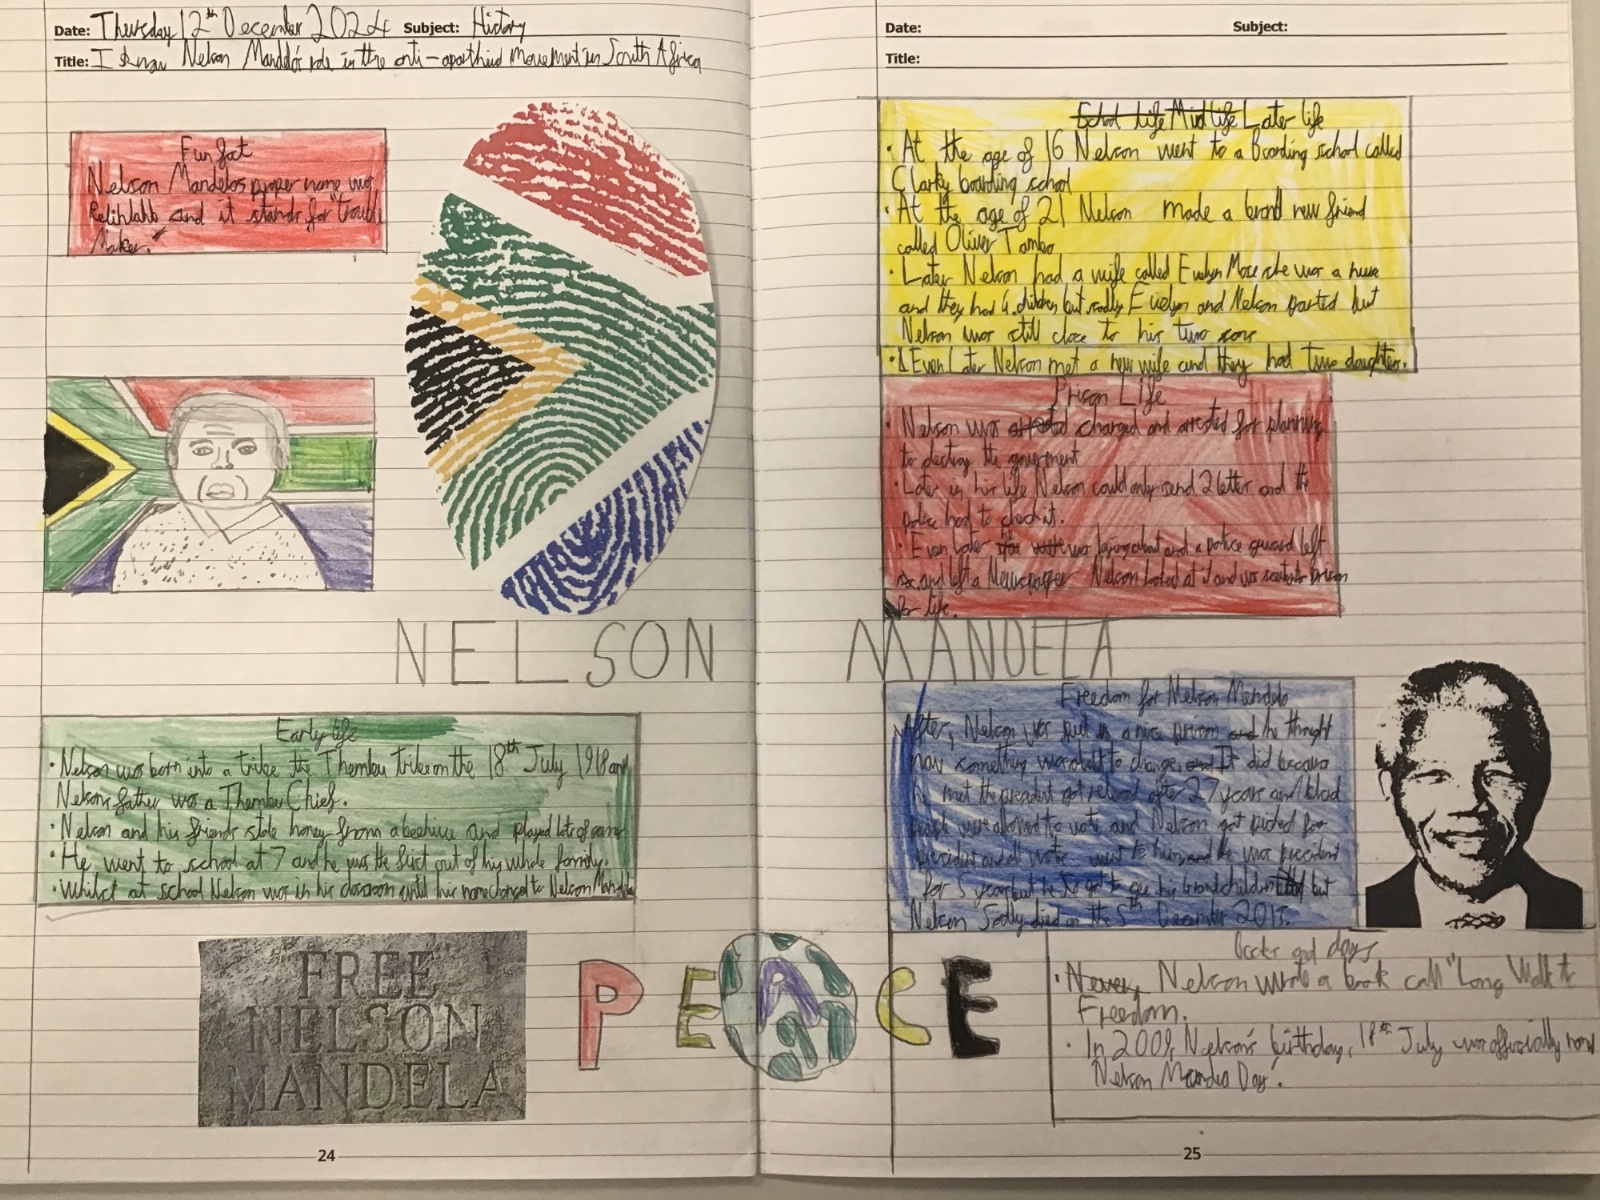 Date: Thursday 12th December 2024 Subject: History
Title: I know Nelson Mandela's role in the anti-apartheid movement in South Africa
Fun fact
Nelson Mandelas proper name was
Rolihlahla and it stands for "trouble
Maker."
NELSON
Early life
• Nelson was born into a tribe the Thembu tribe on the 18th July 1918 and
Nelsons father was a Thembu Chief.
• Nelson and his friends stole honey from a beehive and played lots of games
• He went to school at 7 and he was the first out of his whole family.
• Whilst at school Nelson was in his classroom until his name changed to Nelson Mandela
FREE
NELSON
MANDELA
PEACE
24
Date: Subject:
Title:
School life Mid life Later life
• At the age of 16 Nelson went to a Boarding school called
Clarky boarding school
• At the age of 21 Nelson made a brand new friend
called Oliver Tambo
• Later Nelson had a wife called Evelyn Mase she was a nurse
and they had 4 children but sadly Evelyn and Nelson parted but
Nelson was still close to his two sons
• Even Later Nelson met a new wife and they had two daughters.
Prison Life
• Nelson was arrested charged and arrested for planning
to destroy the goverment
• Later in his life Nelson could only send 2 letter and the
police had to check it.
• Even later he was lying about and a police guard left
and left a Newspaper Nelson looked at it and was sentents prison
for life.
MANDELA
Freedom for Nelson Mandela
After, Nelson was put in a nice prison and he thought
now something was about to change and It did because
he met the president got relesed after 27 years and blad
people were allowed to vote, and Nelson got picked for
president and all votes went to him and he was president
for 5 years but he to got to see his Grandchildren but
Nelson Sadly died on the 5th December 2013.
books and days
• Never, Nelson wrote a book call "Long Walk to
Freedom.
• In 2009, Nelson's birthday, 18th July was officially now
'Nelson Mandela Day'.
25